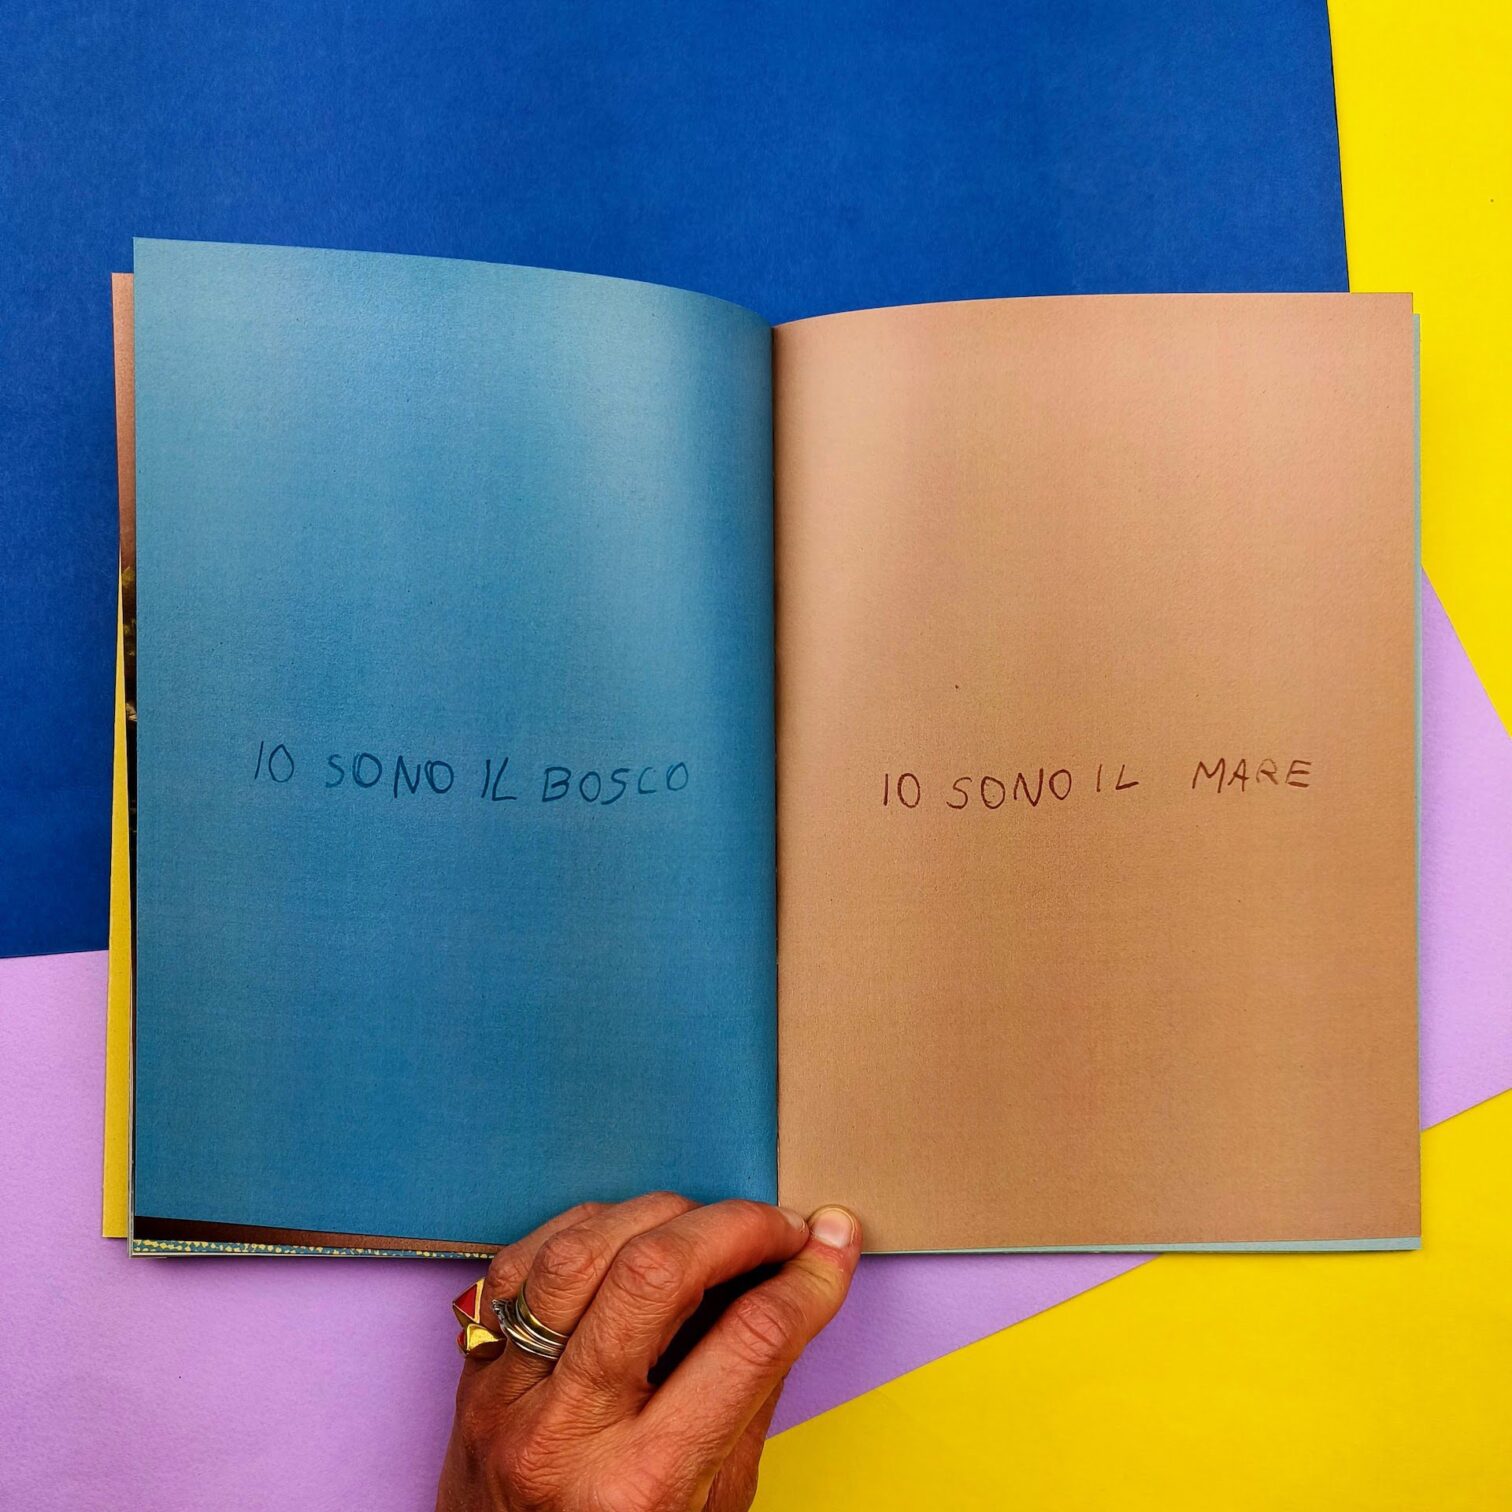 IO SONO IL BOSCO
IO SONO IL MARE